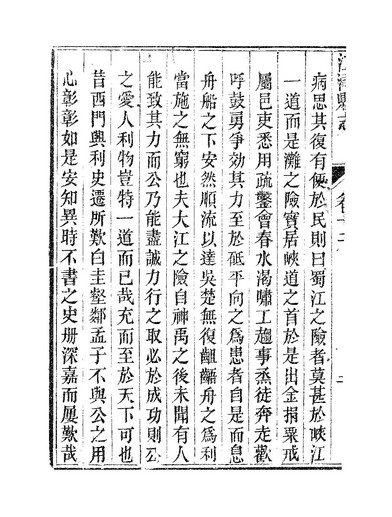 江津縣志
卷十二
病思其復有便於民則曰蜀江之險者莫甚於峽江
一道而是灘之險實居峽道之首於是出金捐粟戒
屬邑吏悉用疏鑿會春水渴嘯工趨事烝徒奔走歡
呼鼓勇爭効其力至於砥平向之爲患者自是而息
舟船之下安然順流以達吳楚無復齟齬舟之爲利
當施之無窮也夫大江之險自神禹之後未聞有人
能致其力而公乃能盡誠力行之取必於成功則公
之愛人利物豈特一道而已哉充而至於天下可也
昔西門興利史遷所歎白圭壑鄰孟子不與公之用
心彰彰如是安知異時不書之史册深嘉而屢歎哉